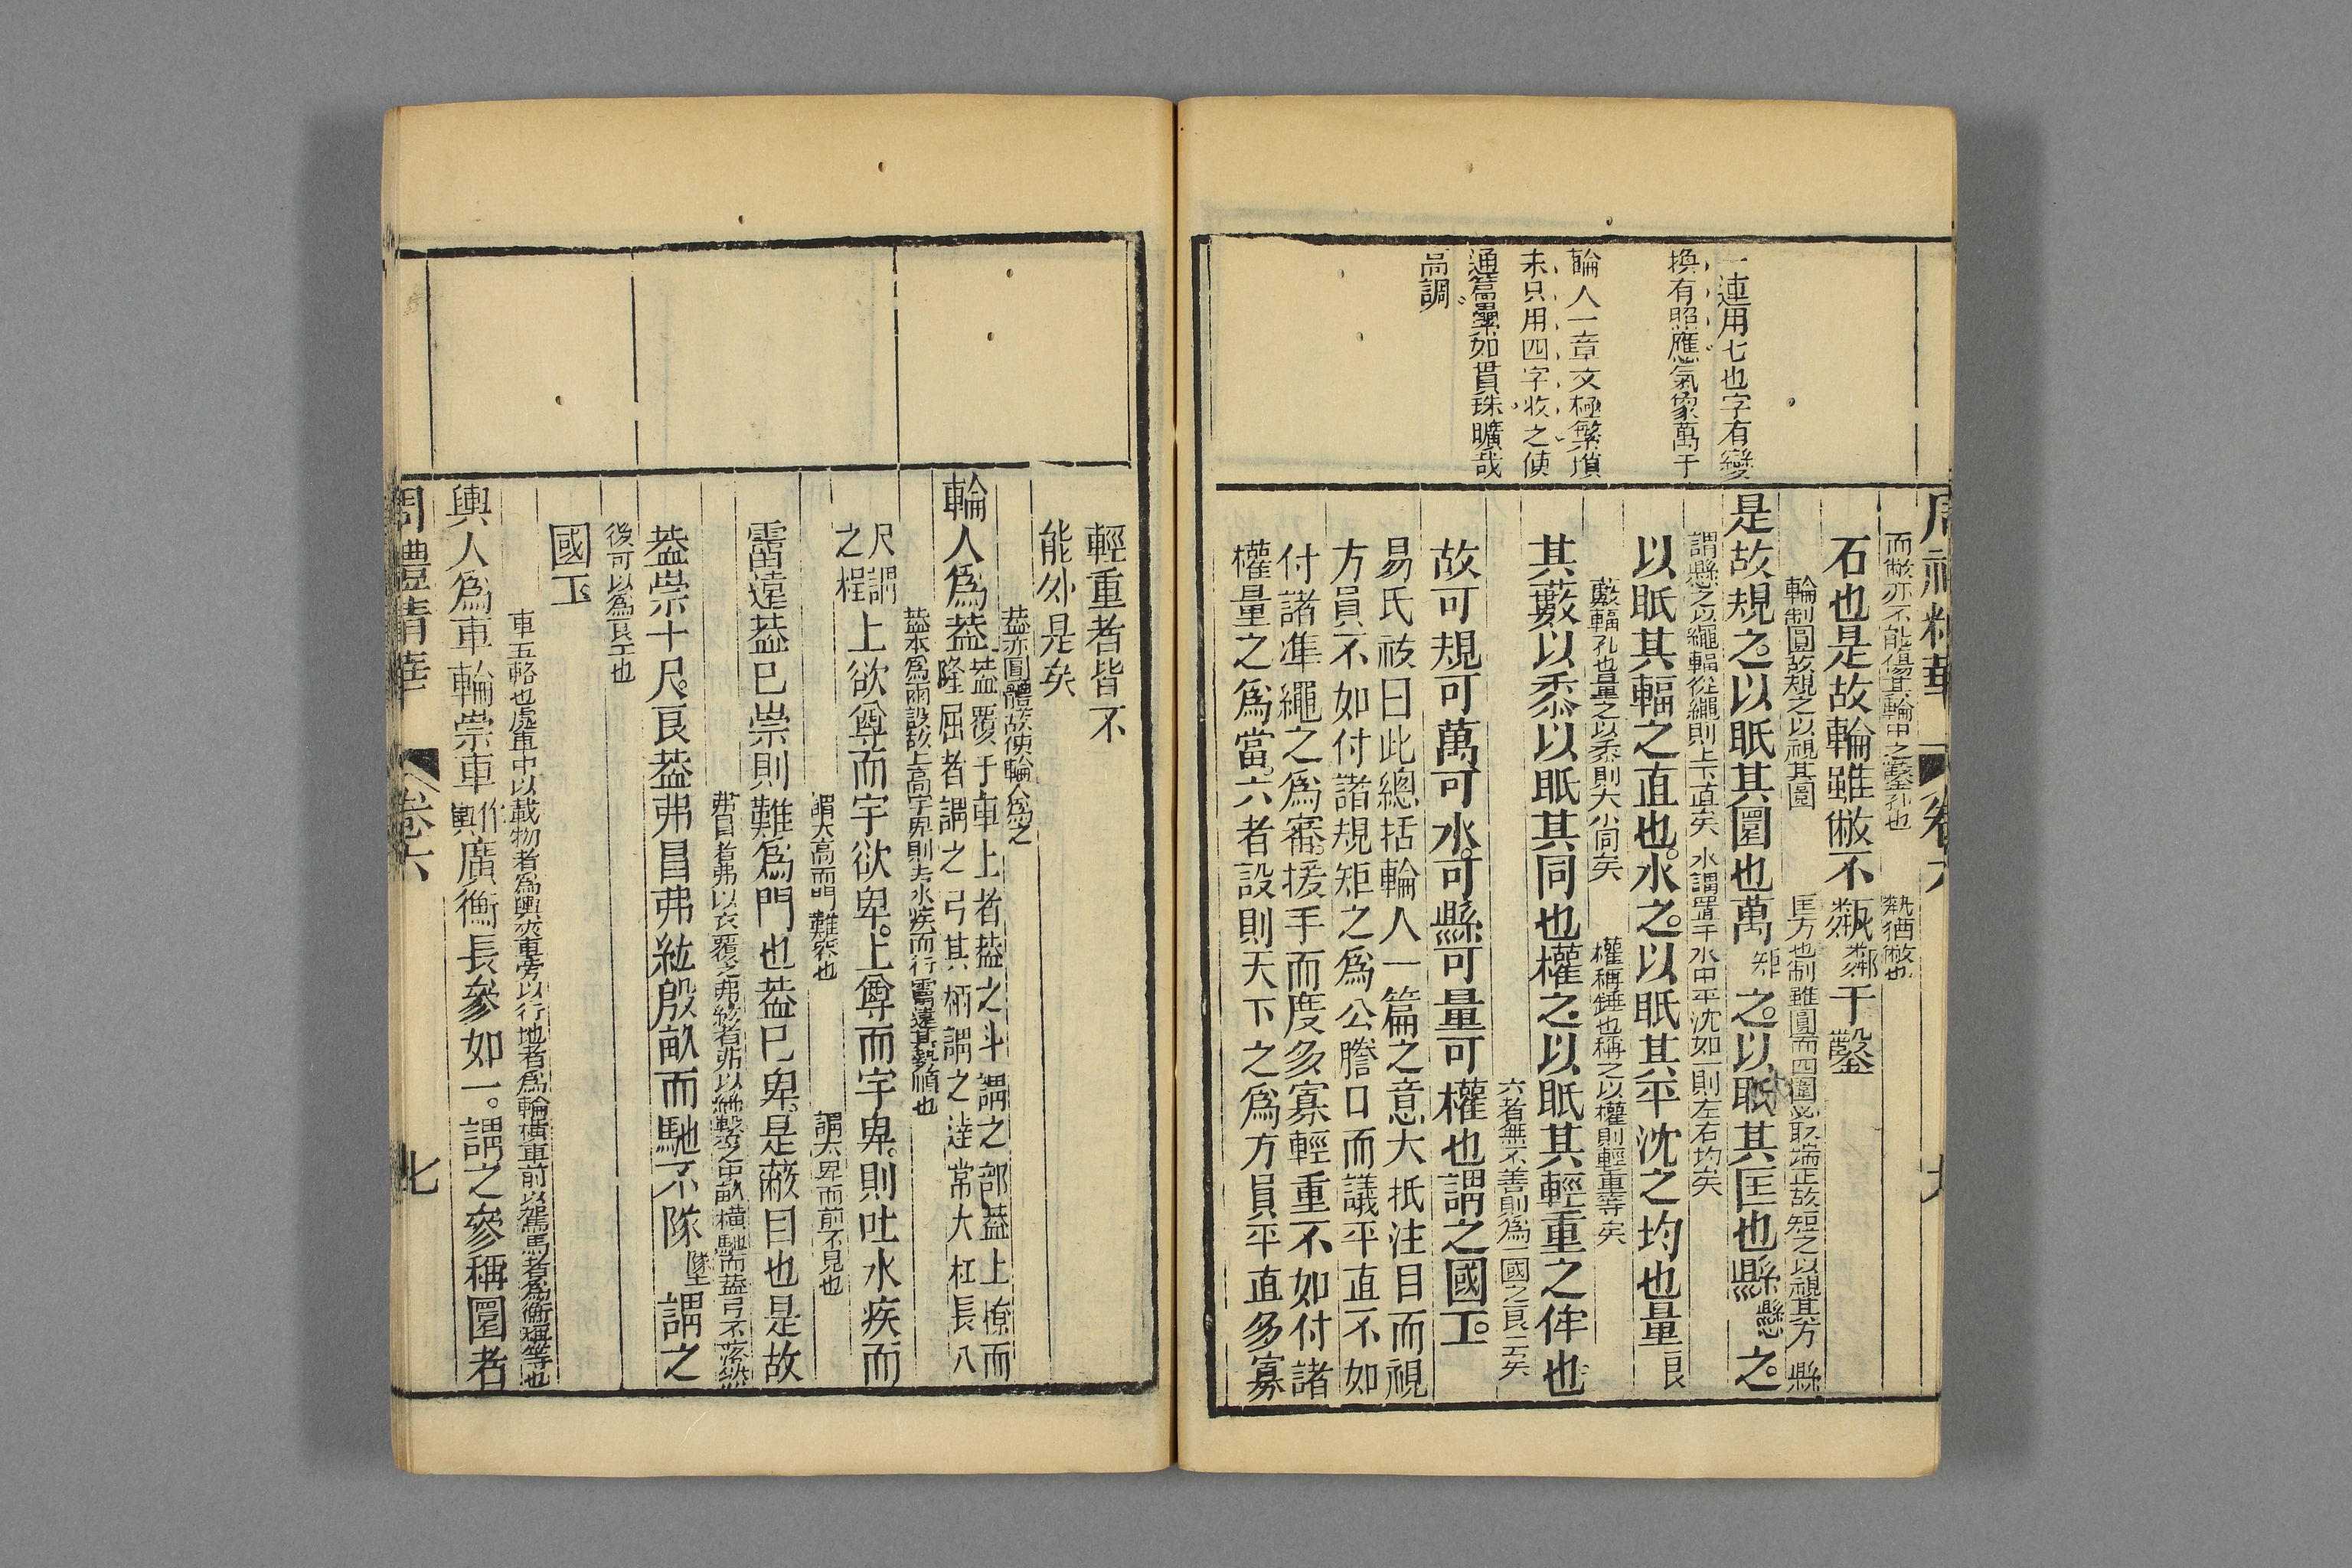 一連用七也字有變
換有照應氣象萬千
輪人一章文極繁瑣
末只用四字收之使
通篇纍如貫珠曠哉
高調
周禮精華
卷六
而敝亦不能傷其輪中之鑿孔也
甐猶敝也
石也是故輪雖敝不甐鄰于鑿
輪制圓故規之以視其圜
匡方也制雖圓而四圍必取端正故矩之以視其方
縣
是故規之以眂其圜也萬矩之以眂其匡也縣懸之
謂懸之以繩輻從繩則上下直矣
水謂置于水中平沈如一則左右均矣
以眂其輻之直也水之以眂其平沈之均也量良
藪輻孔也量之以黍則大小同矣
權稱錘也稱之以權則輕重等矣
其藪以黍以眂其同也權之以眂其輕重之侔也
六者無不善則為一國之良工矣
故可規可萬可水可縣可量可權也謂之國工
易氏祓曰此總括輪人一篇之意大抵注目而視
方員不如付諸規矩之為公謄口而議平直不如
付諸準繩之為審援手而度多寡輕重不如付諸
權量之為當六者設則天下之為方員平直多寡
輕重者皆不
能外是矣
葢亦圓體故使輪人為之
輪人爲葢葢覆于車上者葢之斗謂之部葢上撩而
隆屈者謂之弓其柄謂之達常大杠長八
葢本爲雨設故上高宇卑則去水疾而行霤遠其勢順也
尺謂
之桯
上欲尊而宇欲卑上尊而宇卑則吐水疾而
謂太高而門難容也
謂太卑而前不見也
霤遠葢巳崇則難爲門也葢巳卑是蔽目也是故
弗冒者弗以衣覆之弗紘者弗以繩繫之中畝橫馳而葢弓不落然
葢崇十尺良葢弗冒弗紘殷畝而馳不隊墜謂之
後可以爲良工也
國工
車五輅也處車中以載物者爲輿夾車旁以行地者爲輪橫車前以駕馬者爲衡稱等也
輿人爲車輪崇車作輿廣衡長參如一謂之參稱圜者
周禮精華
卷六
七